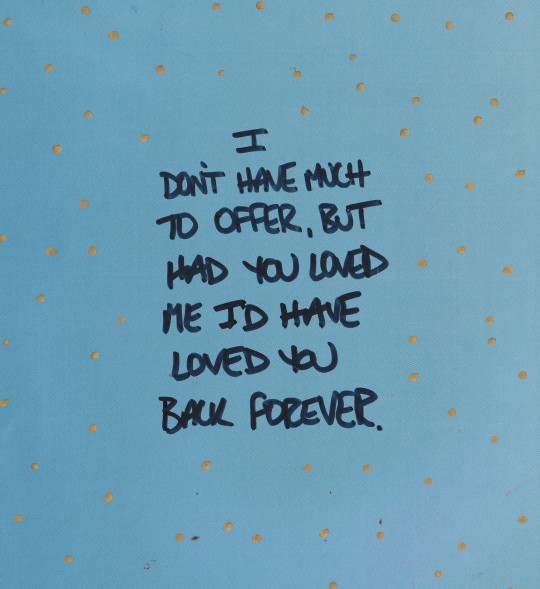 I
DON'T HAVE MUCH
TO OFFER, BUT
HAD YOU LOVED
ME I'D HAVE
LOVED YOU
BACK FOREVER.